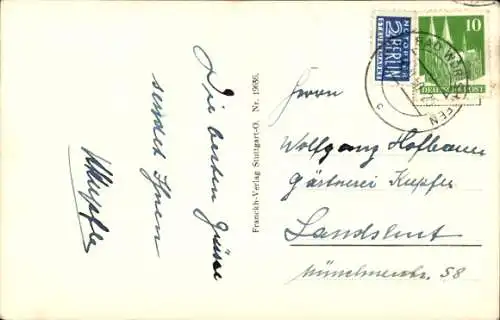 Die besten Grüsse
sendet Ihnen
Franckh-Verlag Stuttgart-O. Nr. 19686.
NOTOPFER
2 BERLIN
STEUERMARKE
10
DEUTSCHE POST
BAD WÖRISHOFEN
c
Herrn
Wolfgang Hofbauer
Gärtnerei Kupfer
Landshut
58